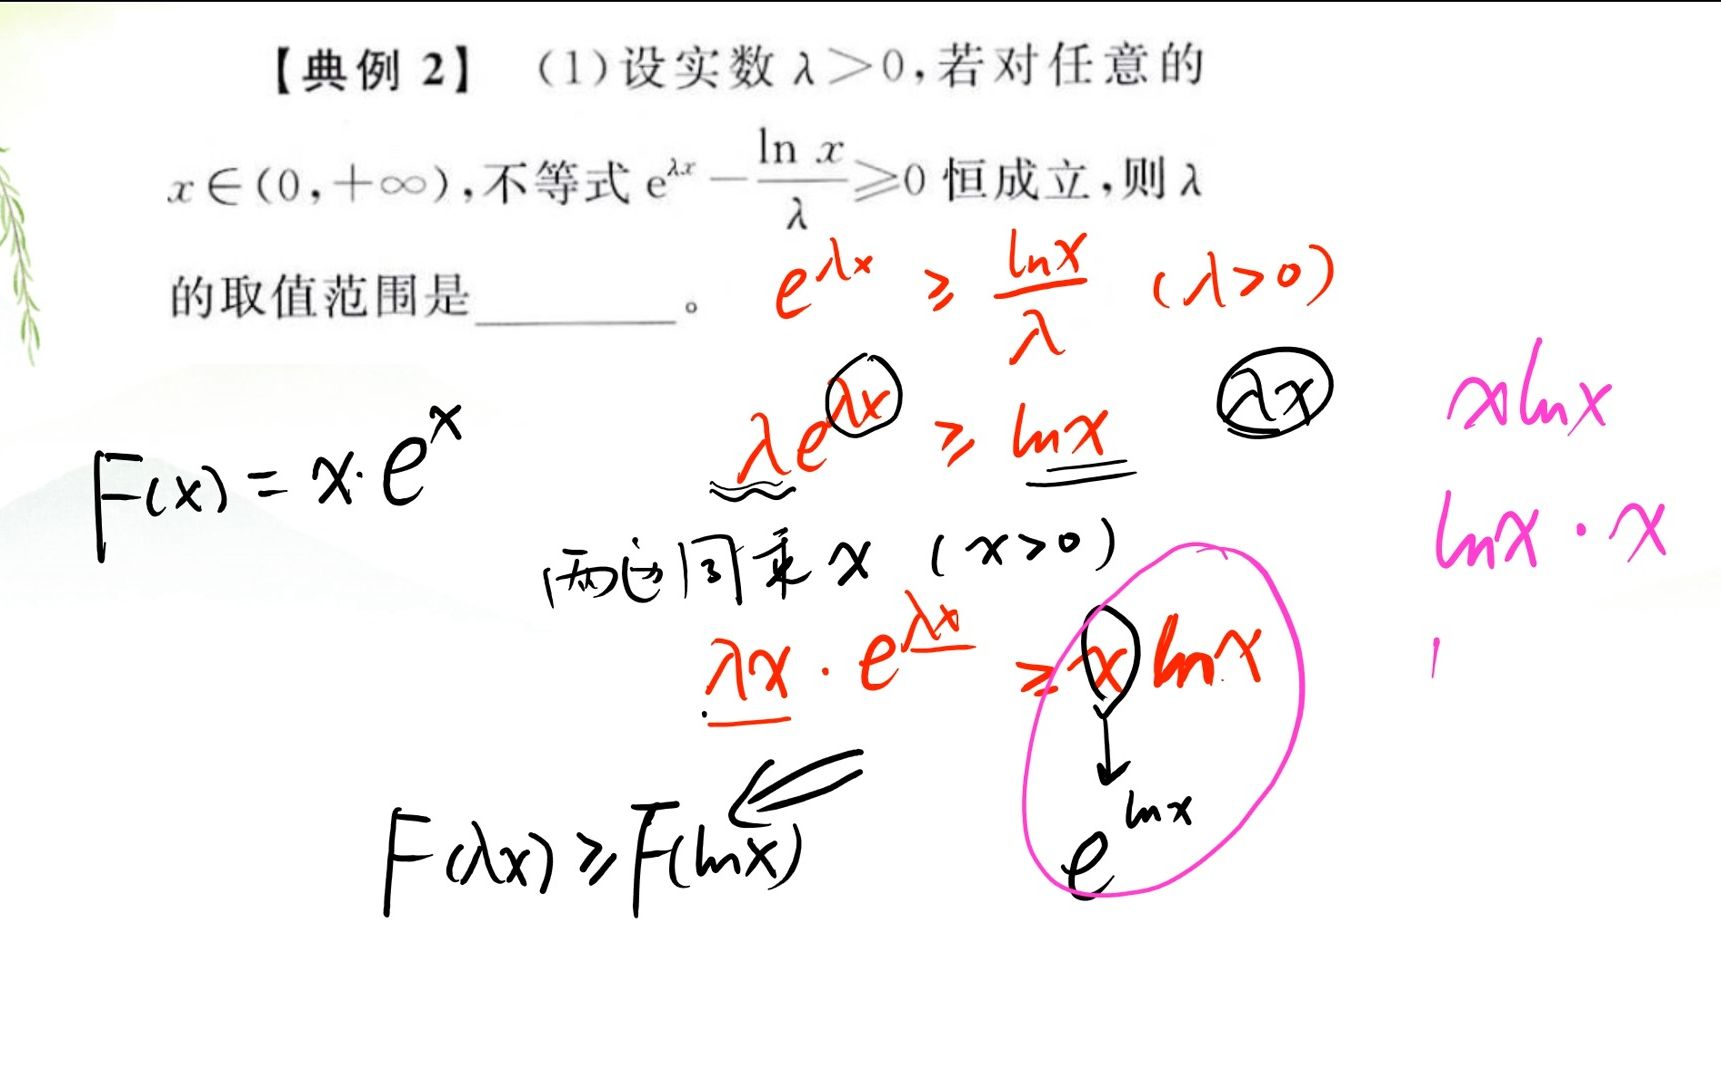 【典例 2】 (1)设实数 λ>0,若对任意的
x∈(0,+∞),不等式 e^{λx} - \frac{ln x}{λ} ≥0 恒成立,则 λ
的取值范围是________。
e^{λx} ≥ \frac{lnx}{λ} (λ>0)
λe^{λx} ≥ lnx
λx
xlnx
F(x) = x·e^x
lnx · x
两边同乘 x (x>0)
λx · e^{λx} ≥ x lnx
e^{lnx}
F(λx) ≥ F(lnx)